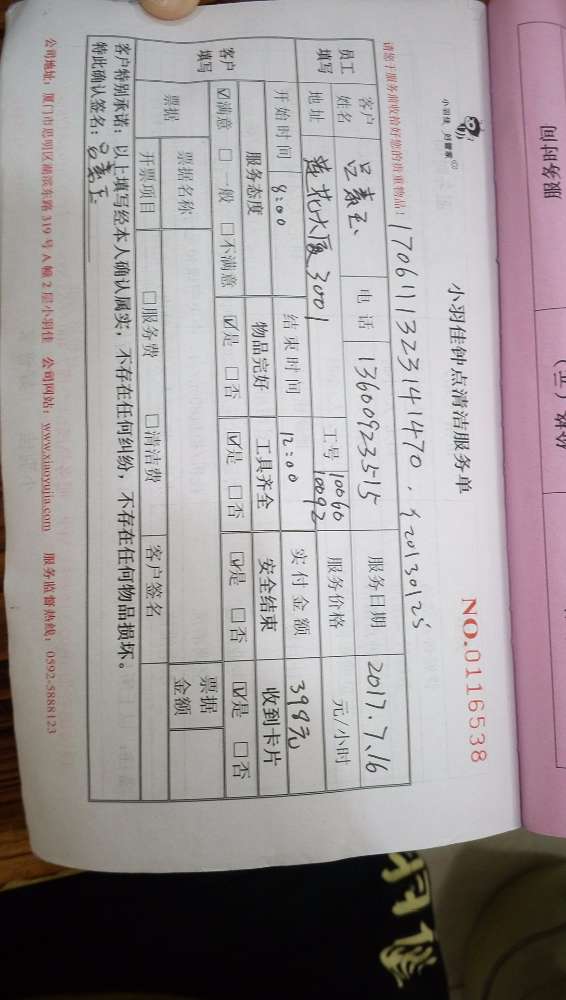 小羽佳 好管家
小羽佳钟点清洁服务单
NO.0116538
请您于服务前收拾好您的贵重物品!
1706111323141470.
20130125
员工填写
客户姓名 吕素玉 电话 13600923515 服务日期 2017.7.16
地址 莲花大厦3001 工号 10060 10092 服务价格 元/小时
开始时间 8:00 结束时间 12:00 实付金额 398元
客户填写
服务态度 物品完好 工具齐全 安全结束 收到卡片
☑满意 □一般 □不满意 ☑是 □否 ☑是 □否 ☑是 □否 ☑是 □否
票据 票据名称 票据金额
开票项目 □服务费 □清洁费 客户签名
客户特别承诺：以上填写经本人确认属实，不存在任何纠纷，不存在任何物品损坏。
特此确认签名：吕素玉
公司地址：厦门市思明区湖滨东路 319 号 A 幢 2 层小羽佳 公司网站：www.xiaoyujia.com 服务监督热线：0592-5888123
服务时间